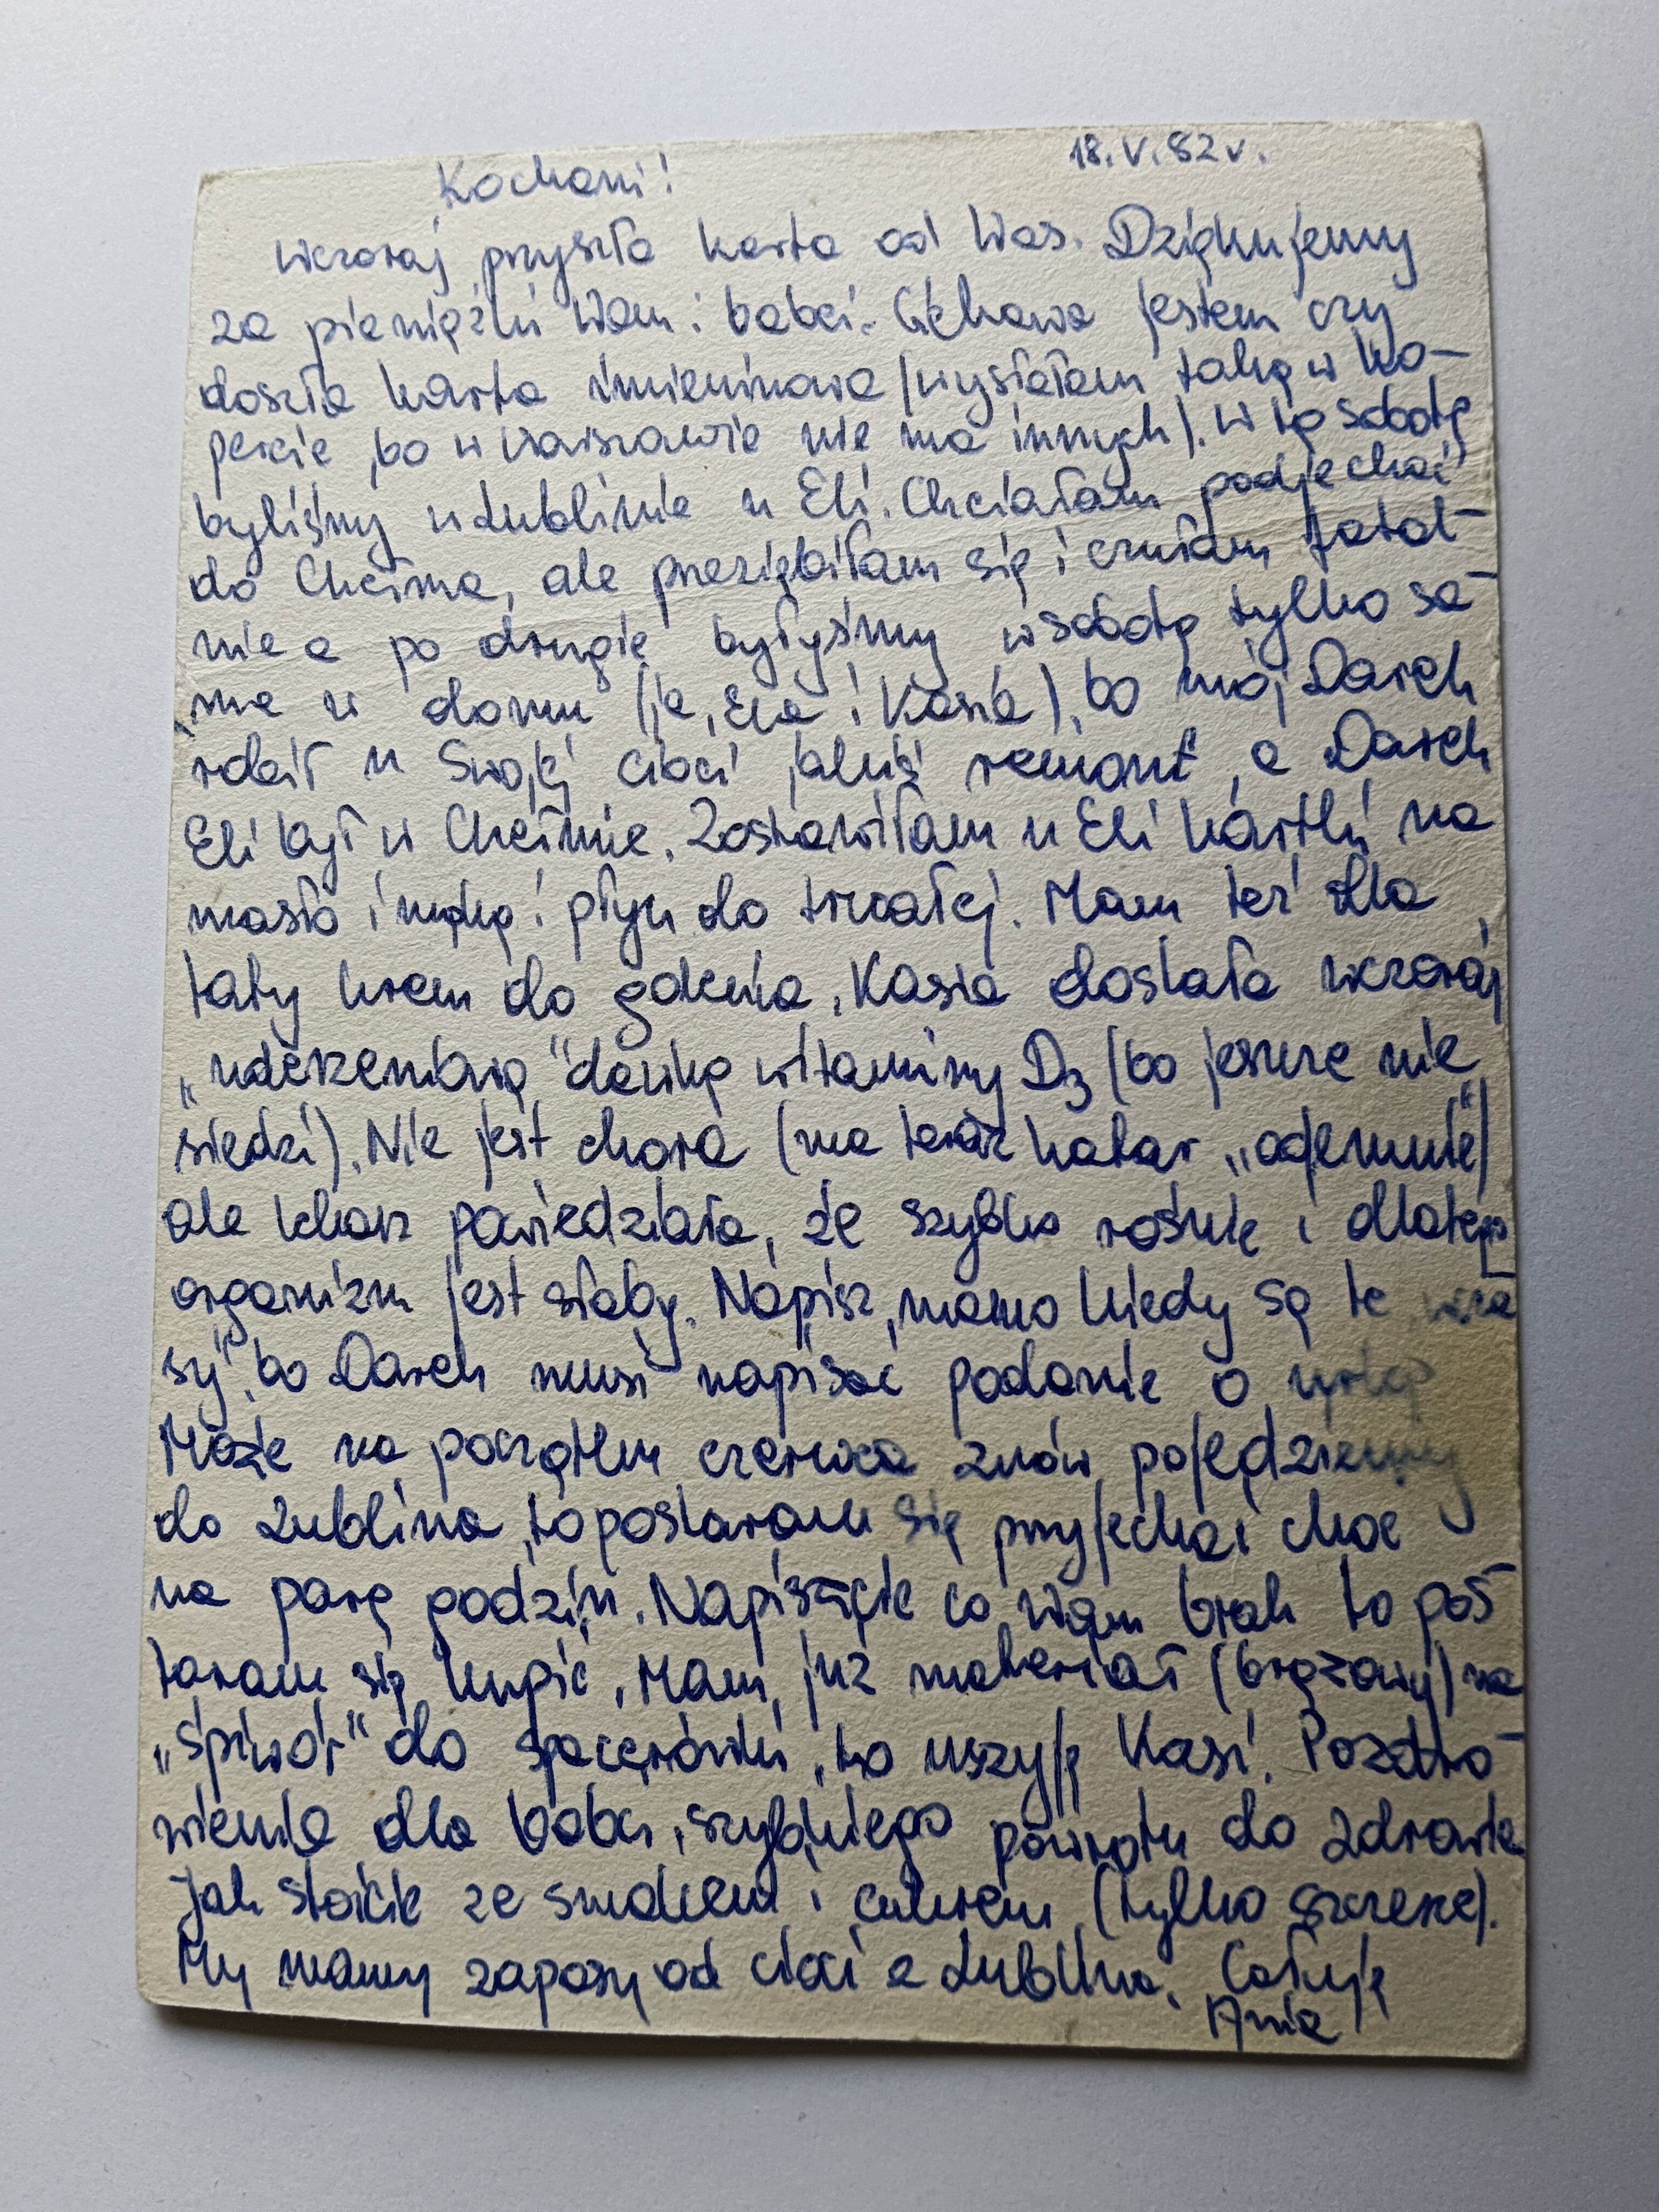 18.V.82r.
Kochani!
wczoraj przyszła karta od Was. Dziękujemy
za pieniążki Wam i babci. Ciekawa jestem czy
doszła karta imieninowa (wysłałam taką w ko-
percie, bo w Warszawie nie ma innych). W tę sobotę
byliśmy w Lublinie u Eli. Chciałam podjechać
do Chełma, ale przeziębiłam się i czułam fatal-
nie a po drugie byłyśmy w sobotę tylko sa-
me w domu (ja, Ela i Kasia), bo mój Darek
robił u swojej cioci jakiś remont, a Darek
Eli był w Chełmie. Zostawiłam u Eli kartki na
masło i mąkę i płyn do trwałej. Mam też dla
taty krem do golenia. Kasia dostała wczoraj
„uderzeniową" dawkę witaminy D3 (bo jeszcze nie
siedzi). Nie jest chora (ma teraz katar „odemnie")
ale lekarz powiedziała, że szybko rośnie i dlatego
organizm jest słaby. Napisz, mamo kiedy są te
sy", bo Darek musi napisać podanie o urlop
Może na początku czerwca znów pojedziemy
do Lublina, to postaram się przyjechać choć
na parę godzin. Napiszcie co Wam brak to pos-
taram się kupić. Mam już materiał (brązowy) na
„śpiwór" do spacerówki, to uszyję Kasi. Pozdro-
wienia dla babci, szybkiego powrotu do zdrowia.
Jak stoicie ze smalcem i cukrem (tylko szczerze).
My mamy zapasy od cioci z Lublina. Całuję
Ania